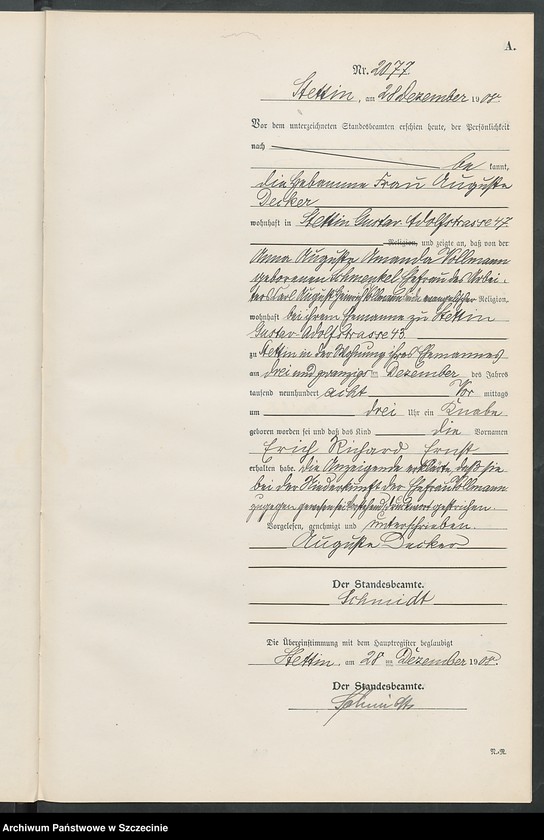 A.
Nr. 2077.
Stettin, am 28 Dezember 1908.
Vor dem unterzeichneten Standesbeamten erschien heute, der Persönlichkeit
nach
be kannt,
die Hebamme Frau Auguste
Decker
wohnhaft in Stettin Gustav-Adolfstrasse 47
Religion, und zeigte an, daß von der
Anna Auguste Amanda Vollmann
geborenen Schmenkel Ehefrau des Arbei-
ters Karl August Heinrich Vollmann beide evangelischer Religion,
wohnhaft bei ihrem Ehemanne zu Stettin
Gustav-Adolfstrasse 43
zu Stettin in der Wohnung ihres Ehemannes
am drei und zwanzigsten Dezember des Jahres
tausend neunhundert acht Vor mittags
um drei Uhr ein Knabe
geboren worden sei und daß das Kind die Vornamen
Erich Richard Ernst
erhalten habe. Die Anzeigende erklärte, daß sie
bei der Niederkunft der Ehefrau Vollmann
zugegen gewesen sei. Vorstehend 1 Druckwort gestrichen.
Vorgelesen, genehmigt und unterschrieben.
Auguste Decker
Der Standesbeamte.
Schmidt
Die Übereinstimmung mit dem Hauptregister beglaubigt
Stettin, am 28 ten Dezember 1908.
Der Standesbeamte.
Schmidt
N.-R.
Archiwum Państwowe w Szczecinie